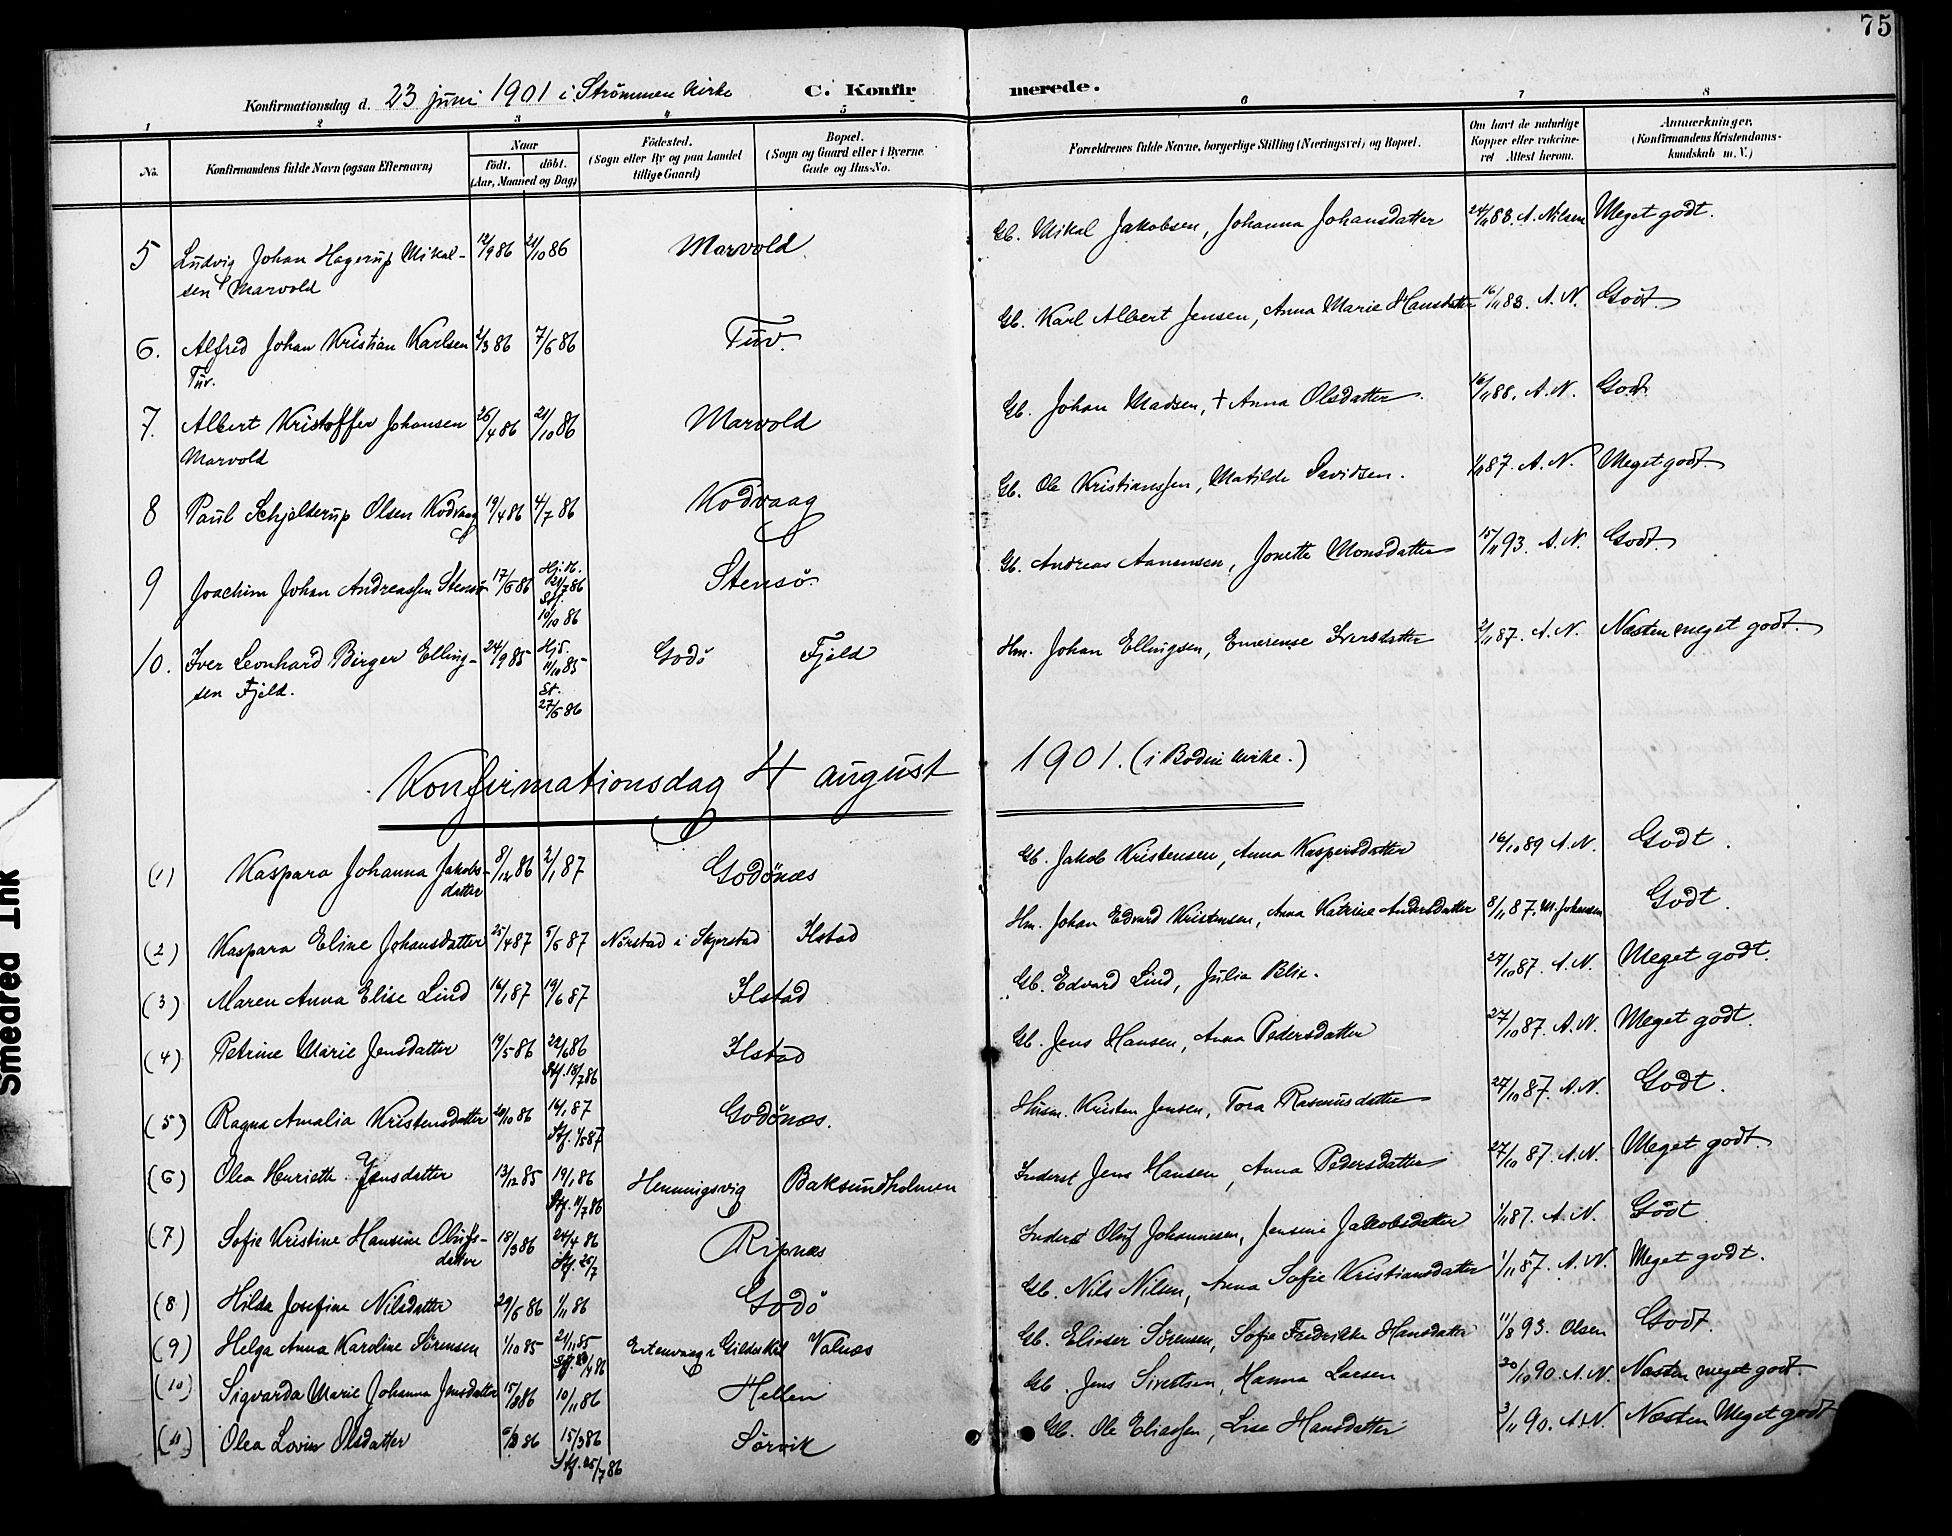 75
Konfirmationsdag d. 23 juni 1901 i Strømmen Kirke C. Konfirmerede.
1 2 3 4 5 6 7 8
No. Konfirmandens fulde Navn (ogsaa Efternavn) Naar født. døbt. (Aar, Maaned og Dag) Fødested. (Sogn eller By og paa Landet tillige Gaard) Bopæl. (Sogn og Gaard eller i Byerne Gade og Hus-No. Forældrenes fulde Navne, borgerlige Stilling (Næringsvei) og Bopæl. Om havt de naturlige Kopper eller vakcineret. Attest herom. Anmærkninger. (Konfirmandens Kristendomskundskab m. V.)
5 Ludvig Johan Hagerup Mikal- 12/9 86 21/10 86 Marvold Gb. Mikal Jakobsen, Johanna Johansdatter 24/11 88. A. Nilsen Meget godt.
sen Marvold
6. Alfred Johan Kristian Karlsen 2/3 86 7/6 86 Tuv. Gb. Karl Albert Jensen, Anna Marie Hansdatter 16/11 88. A. N. Godt
Tuv.
7. Albert Kristoffer Johansen 26/4 86 21/10 86 Marvold Gb. Johan Madsen, + Anna Olsdatter 16/11 88. A. N. Godt
Marvold
8 Paul Schjelderup Olsen Kodvaag 19/4 86 4/7 86 Kodvaag Gb. Ole Kristianssen, Matilde Davidsen. 1/11 87. A. N. Meget godt.
9 Joachim Johan Andreassen Stensø 17/6 86 Hj.d. 12/7 86 Stensø. Gb. Andreas Aanensen, Jonette Monsdatter 15/11 93. A. N. Godt.
Stf. 10/10 86
10. Iver Leonhard Birger Elling- 24/9 85 Hj. 11/10 85 Godø Fjeld Hm. Johan Ellingsen, Emerense Iversdatter 2/11 87. A. N. Næsten meget godt.
sen Fjeld. St. 27/6 86
Konfirmationsdag 4 august 1901. (i Bodin Kirke.)
(1) Kaspara Johanna Jakobs- 8/12 86 2/1 87 Godønæs Gb. Jakob Kristensen, Anna Kaspersdatter 16/10 89 A. N. Godt.
datter
(2) Kaspara Eline Johansdatter 25/4 87 5/6 87 Nørstad i Skjerstad Ilstad Hm. Johan Edvard Kristensen, Anna Katrine Andersdatter 8/11 87. M. Johansen Godt.
(3) Maren Anna Elise Lind 16/1 87 19/6 87 Ilstad Gb. Edvard Lind, Julia Blix. 27/10 87. A. N. Meget godt.
(4) Petrine Marie Jensdatter 19/5 86 22/6 86 Ilstad Gb. Jens Hansen, Anna Pedersdatter 27/10 87. A. N. Meget godt.
Stf. 18/7 86
(5) Ragna Amalia Kristensdatter 20/10 86 16/1 87 Godønæs. Husm. Kristen Jensen, Tora Rasmusdatter 27/10 87. A. N. Godt.
Stf. 1/5 87
(6) Olea Henriette Jensdatter 13/12 85 19/1 86 Henningsvig Baksundholmen Inderst Jens Hansen, Anna Pedersdatter 27/10 87. A. N. Meget godt.
Stf. 11/7 86
(7) Sofie Kristine Hansine Olufs- 18/3 86 24/4 86 Ripnæs Inderst Oluf Johannesen, Jensine Jakobsdatter 1/11 87. A. N. Godt
datter Stf. 25/7
(8) Hilda Josefine Nilsdatter 29/6 86 1/11 86 Godø Gb. Nils Nilsen, Anna Sofie Kristiansdatter 1/11 87. A. N. Meget godt.
(9) Helga Anna Karoline Sørensen 1/10 85 21/11 85 Ertenvaag i Gildeskål Valnæs Gb. Elieser Sørensen, Sofie Fredrikke Hansdatter 11/8 93. Olsen Godt.
(10) Sigvarda Marie Johanna Jensdatter 15/8 86 10/11 86 Hellen Gb. Jens Sivertsen, Hanna Larsen 30/10 90. A. N. Næsten meget godt.
(11) Olea Lovise Olsdatter 15/3 86 Sørvik Gb. Ole Eliassen, Lise Hansdatter 3/11 90. A. N. Næsten Meget godt
Stf. 25/7 86
Smedred Ink